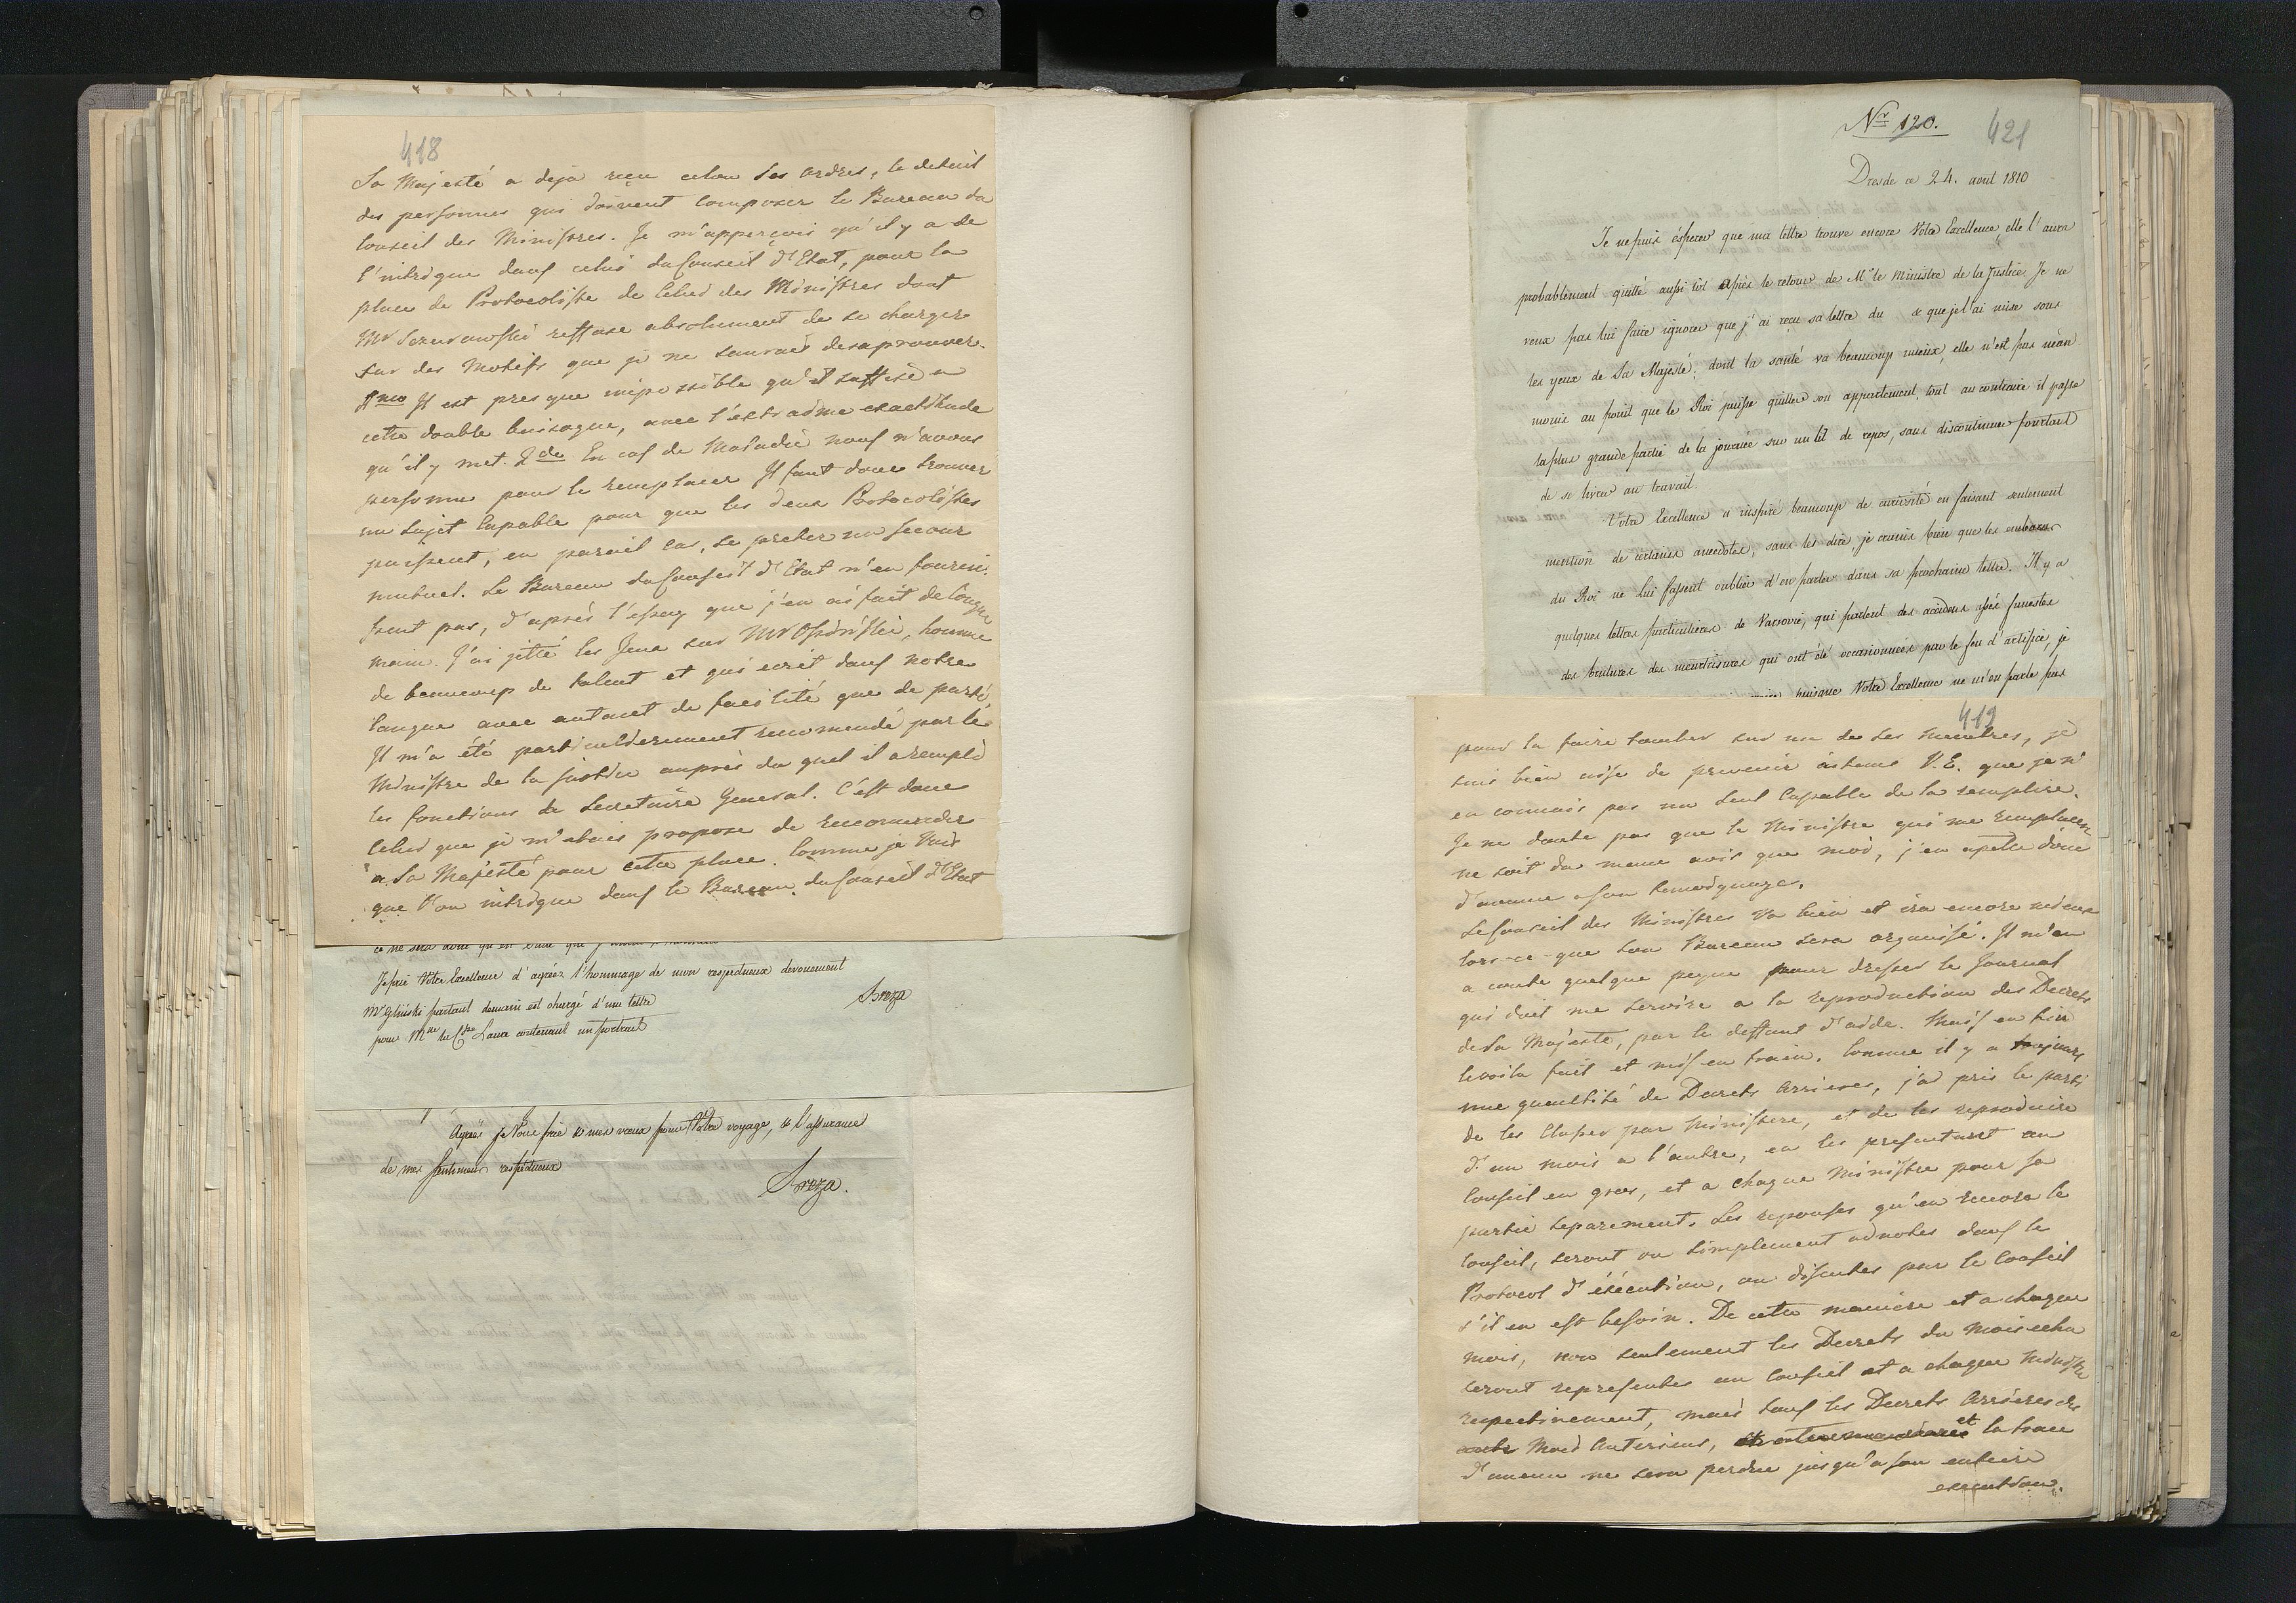 418
Sa Majesté a deja reçu selon ses ordres, le detail
des personnes qui doivent composer le Bureau du
Conseil des Ministres. Je m'apperçois qu'il y a de
l'intrigue dans celui du Conseil d'Etat, pour la
place de Protocoliste de Celui des Ministres dont
Mr reffuse absolument de se charger
sur des Motifs que je ne saurais desaprouver.
Il est presque impossible qu'il suffise a
cette double besogne, avec l'extradme exactitude
qu'il y met. 2do En cas de Maladie nous n'avons
personne pour le remplacer Il faut donc trouver
un sujet Capable pour que les deux Protocolistes
puissent, en pareil cas, se preter un secour
mutuel. Le Bureau du Conseil d'Etat n'en fournis
sent pas, d'après l'essay que j'en ai fait de longue
main. J'ai jetté les Jeux sur Mr Osinski, homme
de beaucoup de talent et qui ecrit dans notre
langue avec autant de facilité que de pureté,
Il m'a été particulierement recomendé par le
Ministre de la Justice auprès du quel il a rempli
les fonctions de Secretaire General. C'est donc
Celui que je m'etais propose de recomender
a Sa Majesté pour cette place. Comme je Vois
que l'on intrigue dans le Bureau du Conseil d'Etat
Je prie Votre Excellence d'agréer l'hommage de mon respectueux devouement
Breza
Mr Gliński partant demain est chargé d'une lettre
pour Mme la Csse Laure contenant un portrait
Agréez je Vous prie & mes vœux pour Votre voyage, & l'assurance
de mes sentimens respectueux
Breza.
Nr 120.
421
Dresde ce 24. avril 1810
Je ne puis éspérer que ma lettre trouve encore Votre Excellence, elle l'aura
probablement quitté aussi tot après le retour de Mr le Ministre de la Justice. Je ne
veux pas lui faire ignorer que j'ai reçu sa lettre du & que je l'ai mise sous
les yeux de Sa Majesté; dont la santé va beaucoup mieux, elle n'est pas néan
moins au point que le Roi puisse quitter son appartement, tout au contraire il passe
la plus grande partie de la journée sur un lit de repos, sans discontinuer pourtant
de se livrer au travail.
Votre Excellence a inspiré beaucoup de curiosité en faisant seulement
mention de certaines anecdotes, sans les dire, je crains bien que les
du Roi ne Lui fassent oublier d'en parler dans sa prochaine lettre. Il y a
quelques lettres particulieres de Varsovie, qui parlent des accidens assés funestes
des brulures des meurtrisures qui ont été occasionnées par le feu d'artifice, je
puisque Votre Excellence ne m'en parle pas
419
pour la faire tomber sur un de ses membres, je
suis bien aise de prevenir à tems V. E. que je n'
en connais pas un seul Capable de la remplire.
Je ne doute pas que le Ministre qui me remplacera
ne soit du meme avis que moi, j'en apelle donc
d'avance a son temoignage.
Le Conseil des Ministres va bien et ira encore mieux
lors-ce-que son Bureau sera organisé. Il m'en
a couté quelque peine pour dresser le Journal
qui doit me servire a la reproduction des Decrets
de Sa Majesté, par le deffaut d'aide. Mais en fin
le voila fait et mis en train. Comme il y a toujours
une quantité de Decrets Arrieres, j'ai pris le parti
de les Classer par Ministere, et de les reproduire
d'un mois a l'autre, en les presentant au
Conseil en gros, et a chaque Ministre pour sa
partie separement. Les reponses qu'en recevra le
Conseil, seront ou simplement adnotes dans le
Protocol d'éxécution, ou discutes par le Conseil
s'il en est besoin. De cette maniere et a chaque
mois, non seulement les Decrets du Mois echu
seront representes au Conseil et a chaque Ministre
respectivement, mais tous les Decrets Arrieres des
Mois Anterieurs, et la trace
d'aucun ne sera perdue jusqu'a son entiere
execution.